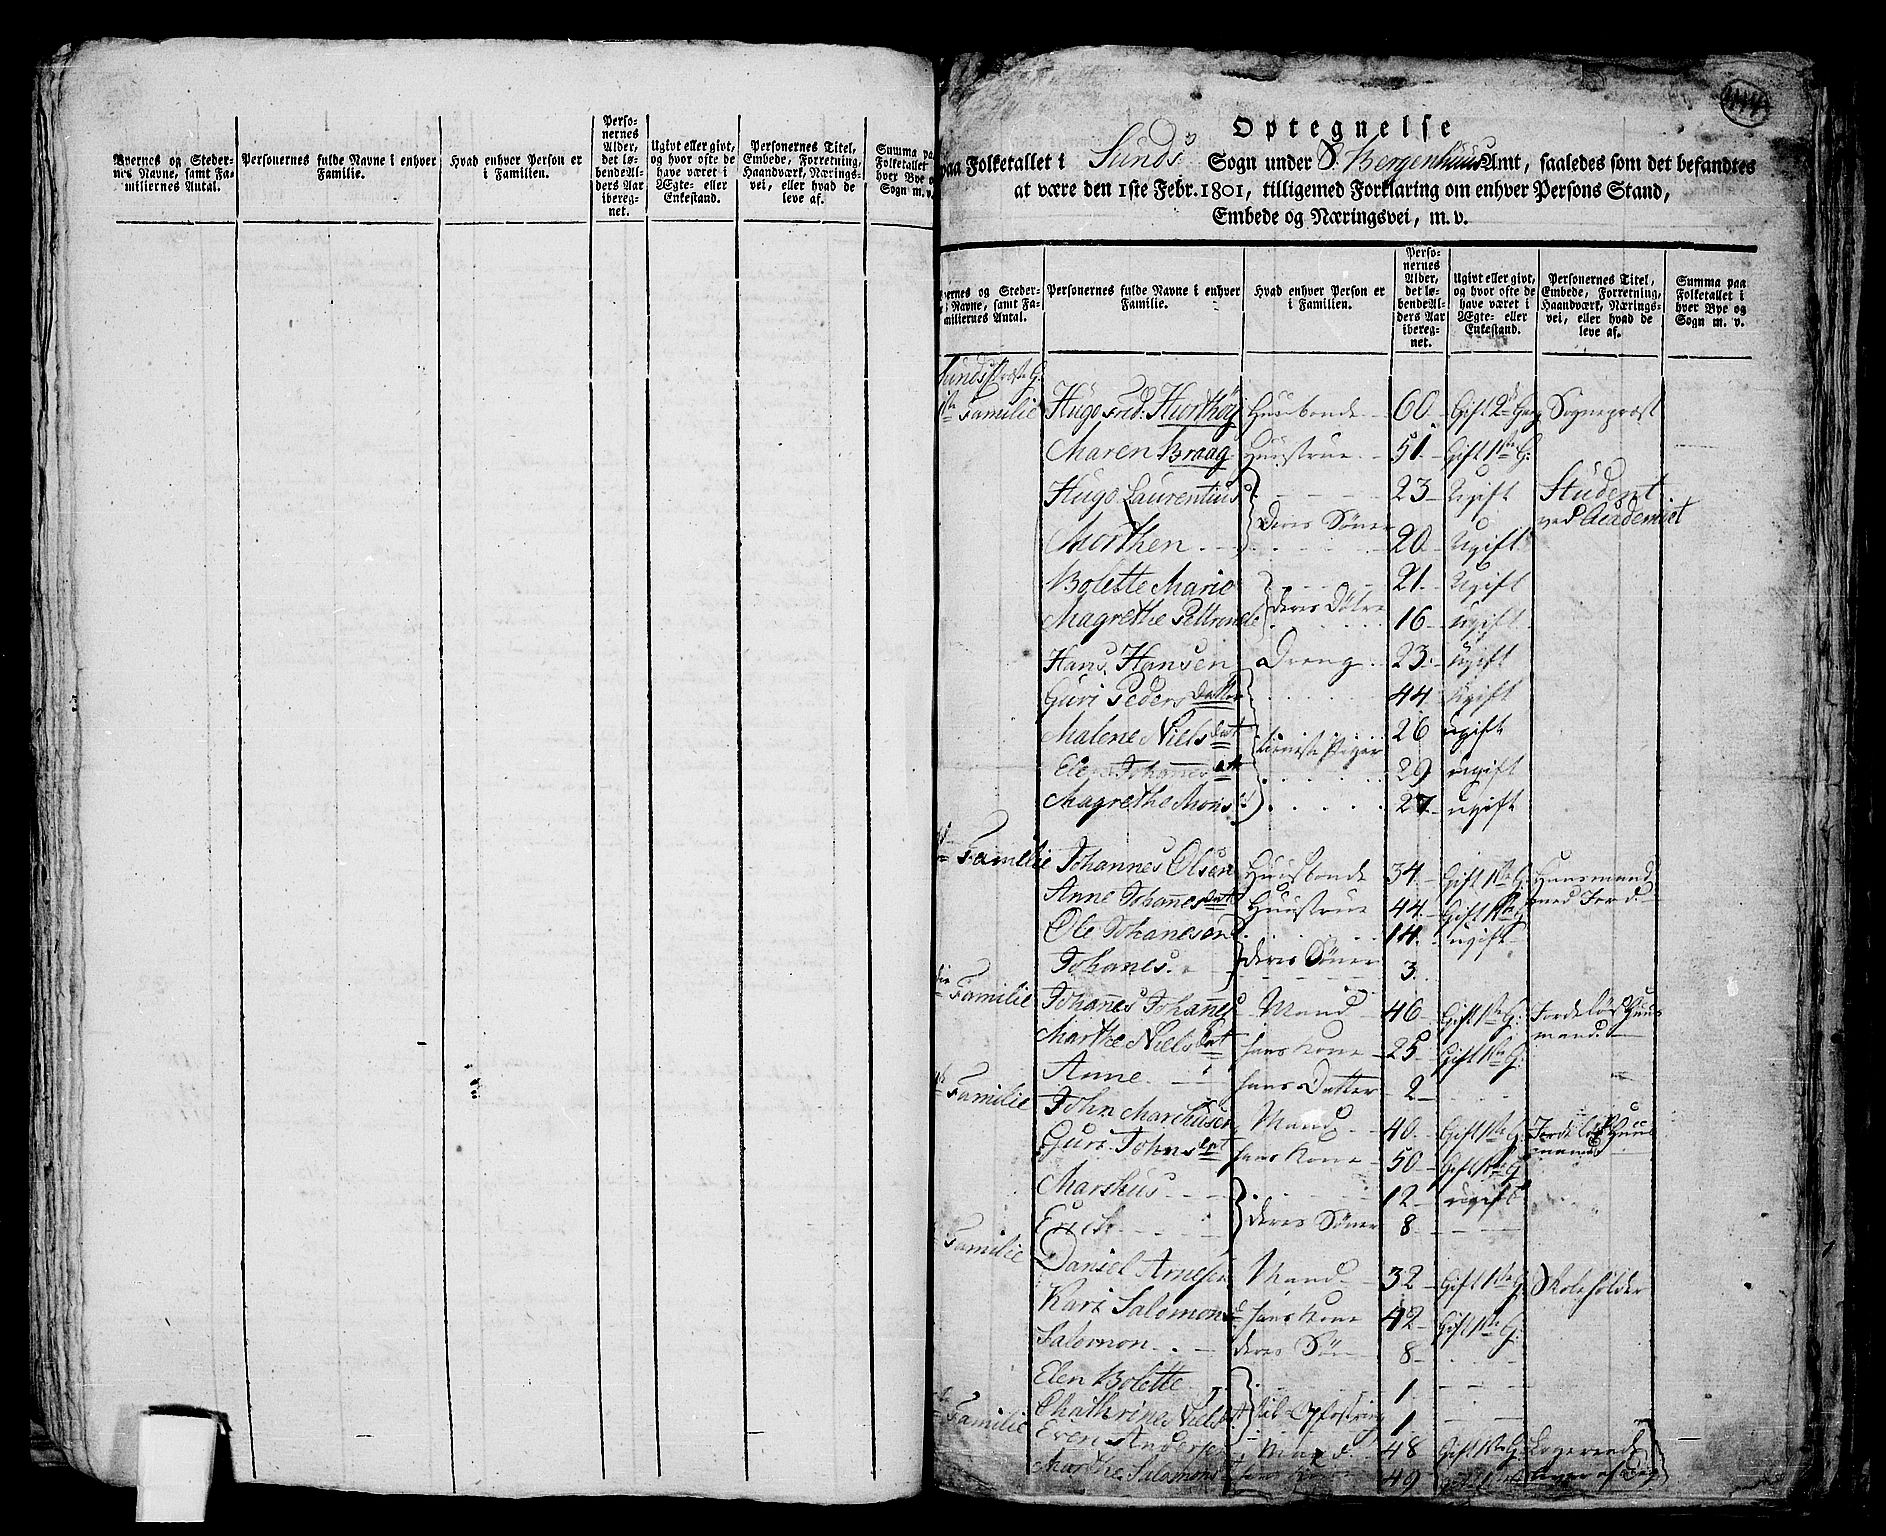 Byernes og Steder-
nes Navne, samt Fa-
miliernes Antal.
Personernes fulde Navne i enhver
Familie.
Hvad enhver Person er
i Familien.
Perso-
nernes
Alder,
det lø-
bende Al-
ders Aar
iberegnet.
Ugivt eller givt,
og hvor ofte de
have været i
Ægte- eller
Enkestand.
Personernes Titel,
Embede, Forretning,
Haandværk, Nærings-
vei, eller hvad de
leve af.
Summa paa
Folketallet
hver Bye o
Sogn m. v.
Optegnelse
paa Folketallet i Sunds Sogn under S. Bergenhuus Amt, saaledes som det befandtes
at være den 1ste Febr. 1801, tilligemed Forklaring om enhver Persons Stand,
Embede og Næringsvei, m. v.
yernes og Steder-
s Navne, samt Fa-
miliernes Antal.
Personernes fulde Navne i enhver
Familie.
Hvad enhver Person er
i Familien.
Perso-
nernes
Alder,
det lø-
bende Al-
ders Aar
ibereg-
net.
Ugivt eller givt,
og hvor ofte de
have været i
Ægte- eller
Enkestand.
Personernes Titel,
Embede, Forretning,
Haandværk, Nærings-
vei, eller hvad de
leve af.
Summa paa
Folketallet i
hver Bye og
Sogn m. v.
Sunds Præste G.
1ste Familie Hugo Fred. Hiorthøy Huusbonde 60 Gift 2den Gang Sognepræst
Maren Braag Huustrue 51 Gift 1ste G:
Hugo Laurentius 23 Ugift Student
deres Sønner ved Academiet
Morthen 20 Ugift
Bolette Marie 21 Ugift
deres Døtre
Magrethe Pettronele 16 Ugift
Hans Hansen Dreng 23 Ugift
Guri Peders Datter 44 Ugift
Malene Niels Dat 26 ugift
tieneste Piger
Elen Johannes Dat 29 ugift
Magrethe Mons D 27 ugift
Familie Johannes Olsen Huusbonde 34 Gift 1ste G: Huusmand
Anne Johannes Dat Huustrue 44 Gift 1ste G med Jord
Ole Johanesen 14 ugift
deres Sønner
Johanes 3
Familie Johannes Johannes Mand 46 Gift 1ste G: Jordeløs Huus
Marthe Niels Dat hans Kone 25 Gift 1ste G: mand
Anne hans Datter 2
Familie John Marchusen Mand 40 Gift 1ste G: Jordeløs Huus
Guri Johns Dat hans Kone 50 Gift 1ste G mand
Marchus 12 ugift
deres Sønner
Erich 8
Familie Daniel Arnesen Mand 32 Gift 1ste G Skoleholder
Kari Salomons D hans Kone 42 Gift 1ste G:
Salomon deres Søn 8
Elen Bolette 1
Chathrine Niels Dat til Opfostring 1
Familie Even Andersen Mand 48 Gift 1ste G: Logerende
Marthe Salomons hans Kone 49